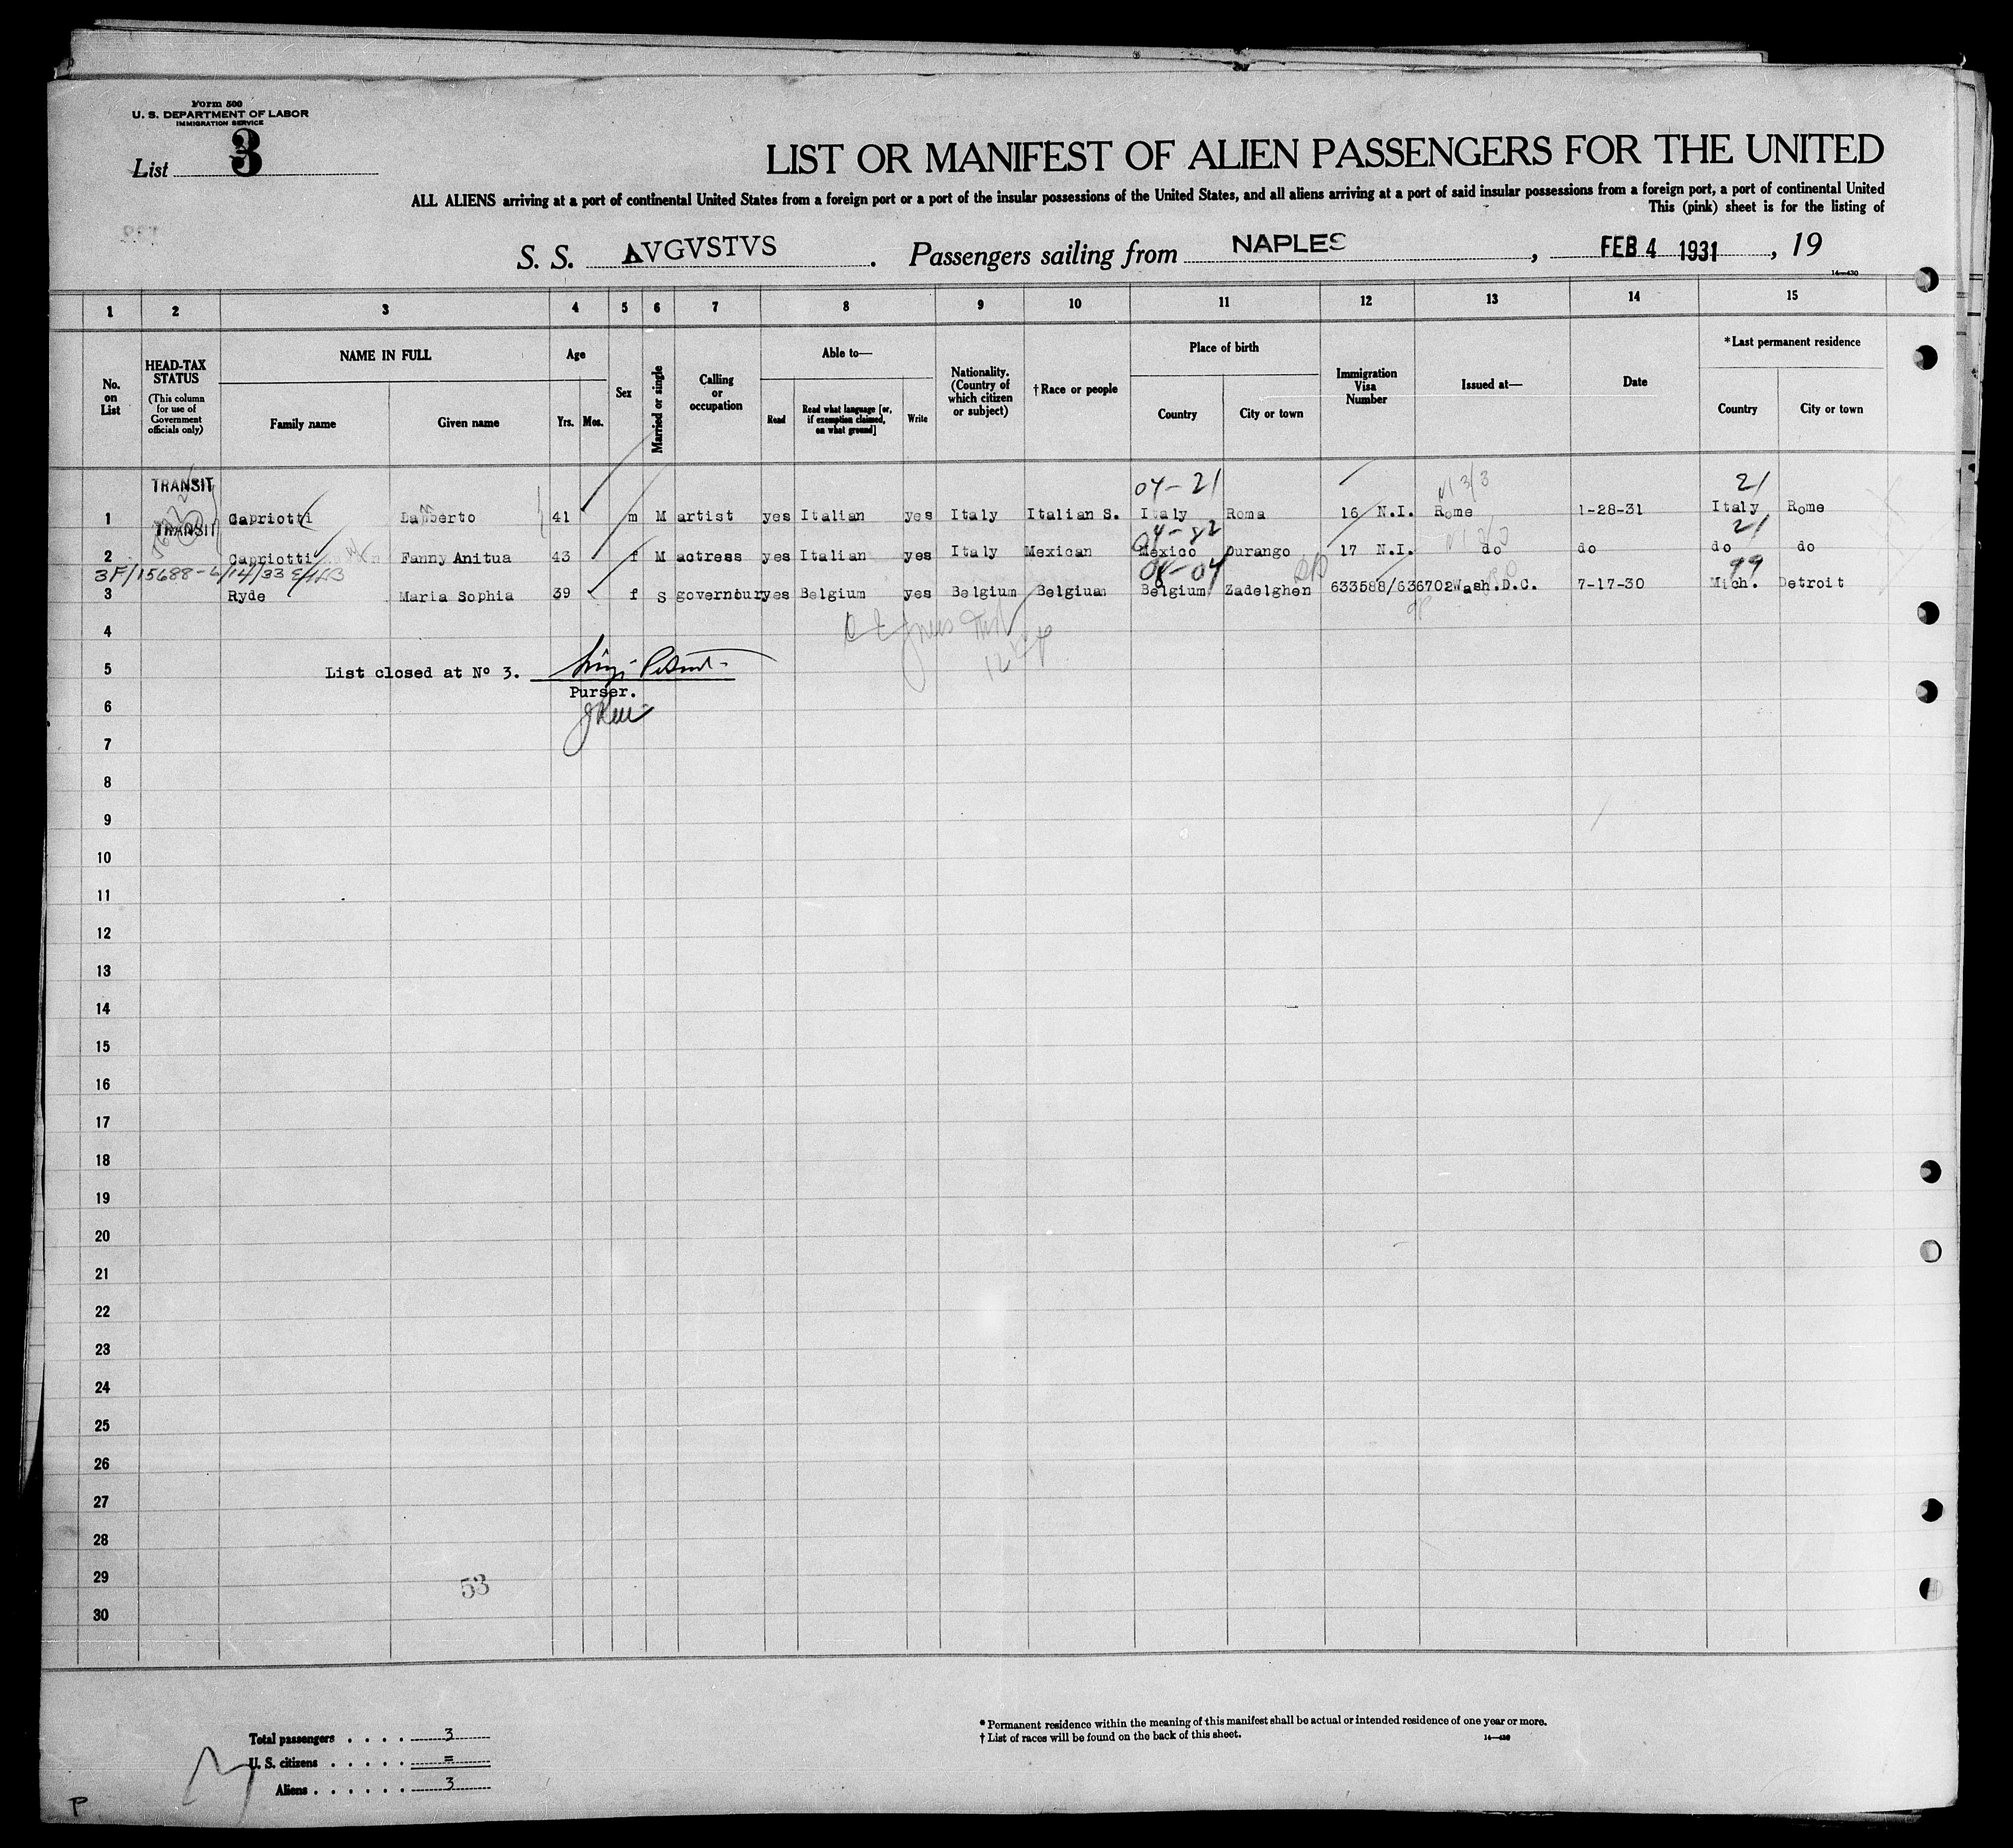 Form 500
U. S. DEPARTMENT OF LABOR
IMMIGRATION SERVICE
List 3
LIST OR MANIFEST OF ALIEN PASSENGERS FOR THE UNITED
ALL ALIENS arriving at a port of continental United States from a foreign port or a port of the insular possessions of the United States, and all aliens arriving at a port of said insular possessions from a foreign port, a port of continental United
This (pink) sheet is for the listing of
S. S. AVGVSTVS. Passengers sailing from NAPLES, FEB 4 1931, 19
14—430
1 2 3 4 5 6 7 8 9 10 11 12 13 14 15
No. on List
HEAD-TAX STATUS (This column for use of Government officials only)
NAME IN FULL Family name Given name
Age Yrs. Mos.
Sex
Married or single
Calling or occupation
Able to— Read Read what language [or, if exemption claimed, on what ground] Write
Nationality. (Country of which citizen or subject)
†Race or people
Place of birth Country City or town
Immigration Visa Number
Issued at—
Date
*Last permanent residence Country City or town
TRANSIT 04-21 NI 3/3 21
1 Capriotti Lamberto 41 m M artist yes Italian yes Italy Italian S. Italy Roma 16 N.I. Rome 1-28-31 Italy Rome
TRANSIT 04-82 21
2 Capriotti Fanny Anitua 43 f M actress yes Italian yes Italy Mexican Mexico Durango 17 N.I. do do do do
3F/15688-6/14/33 08-04 99
3 Ryde Maria Sophia 39 f S governour yes Belgium yes Belgium Belgium Belgium Zadelghen 633588/636702 Wash.D.C. 7-17-30 Mich. Detroit
4
5 List closed at No 3.
Purser.
6
7
8
9
10
11
12
13
14
15
16
17
18
19
20
21
22
23
24
25
26
27
28
29
53
30
Total passengers . . . . 3
U. S. citizens . . . . . =
Aliens . . . . . . 3
* Permanent residence within the meaning of this manifest shall be actual or intended residence of one year or more.
† List of races will be found on the back of this sheet.
14—430
P